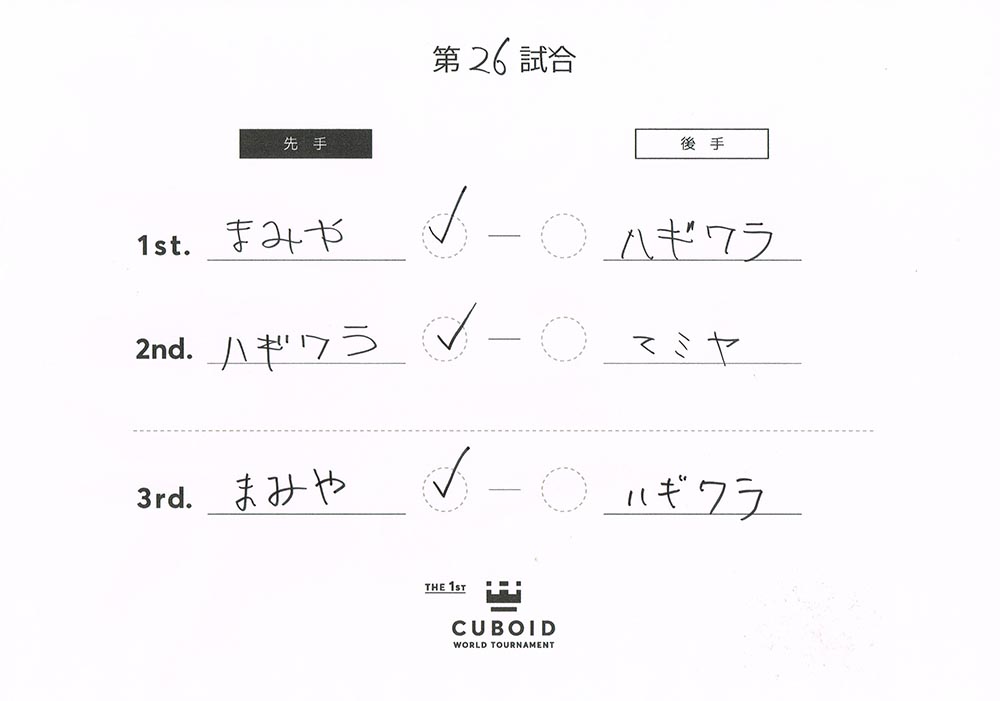 第26試合
先手 後手
1st. まみや ✓ — ハギワラ
2nd. ハギワラ ✓ — マミヤ
3rd. まみや ✓ — ハギワラ
THE 1ST
CUBOID
WORLD TOURNAMENT